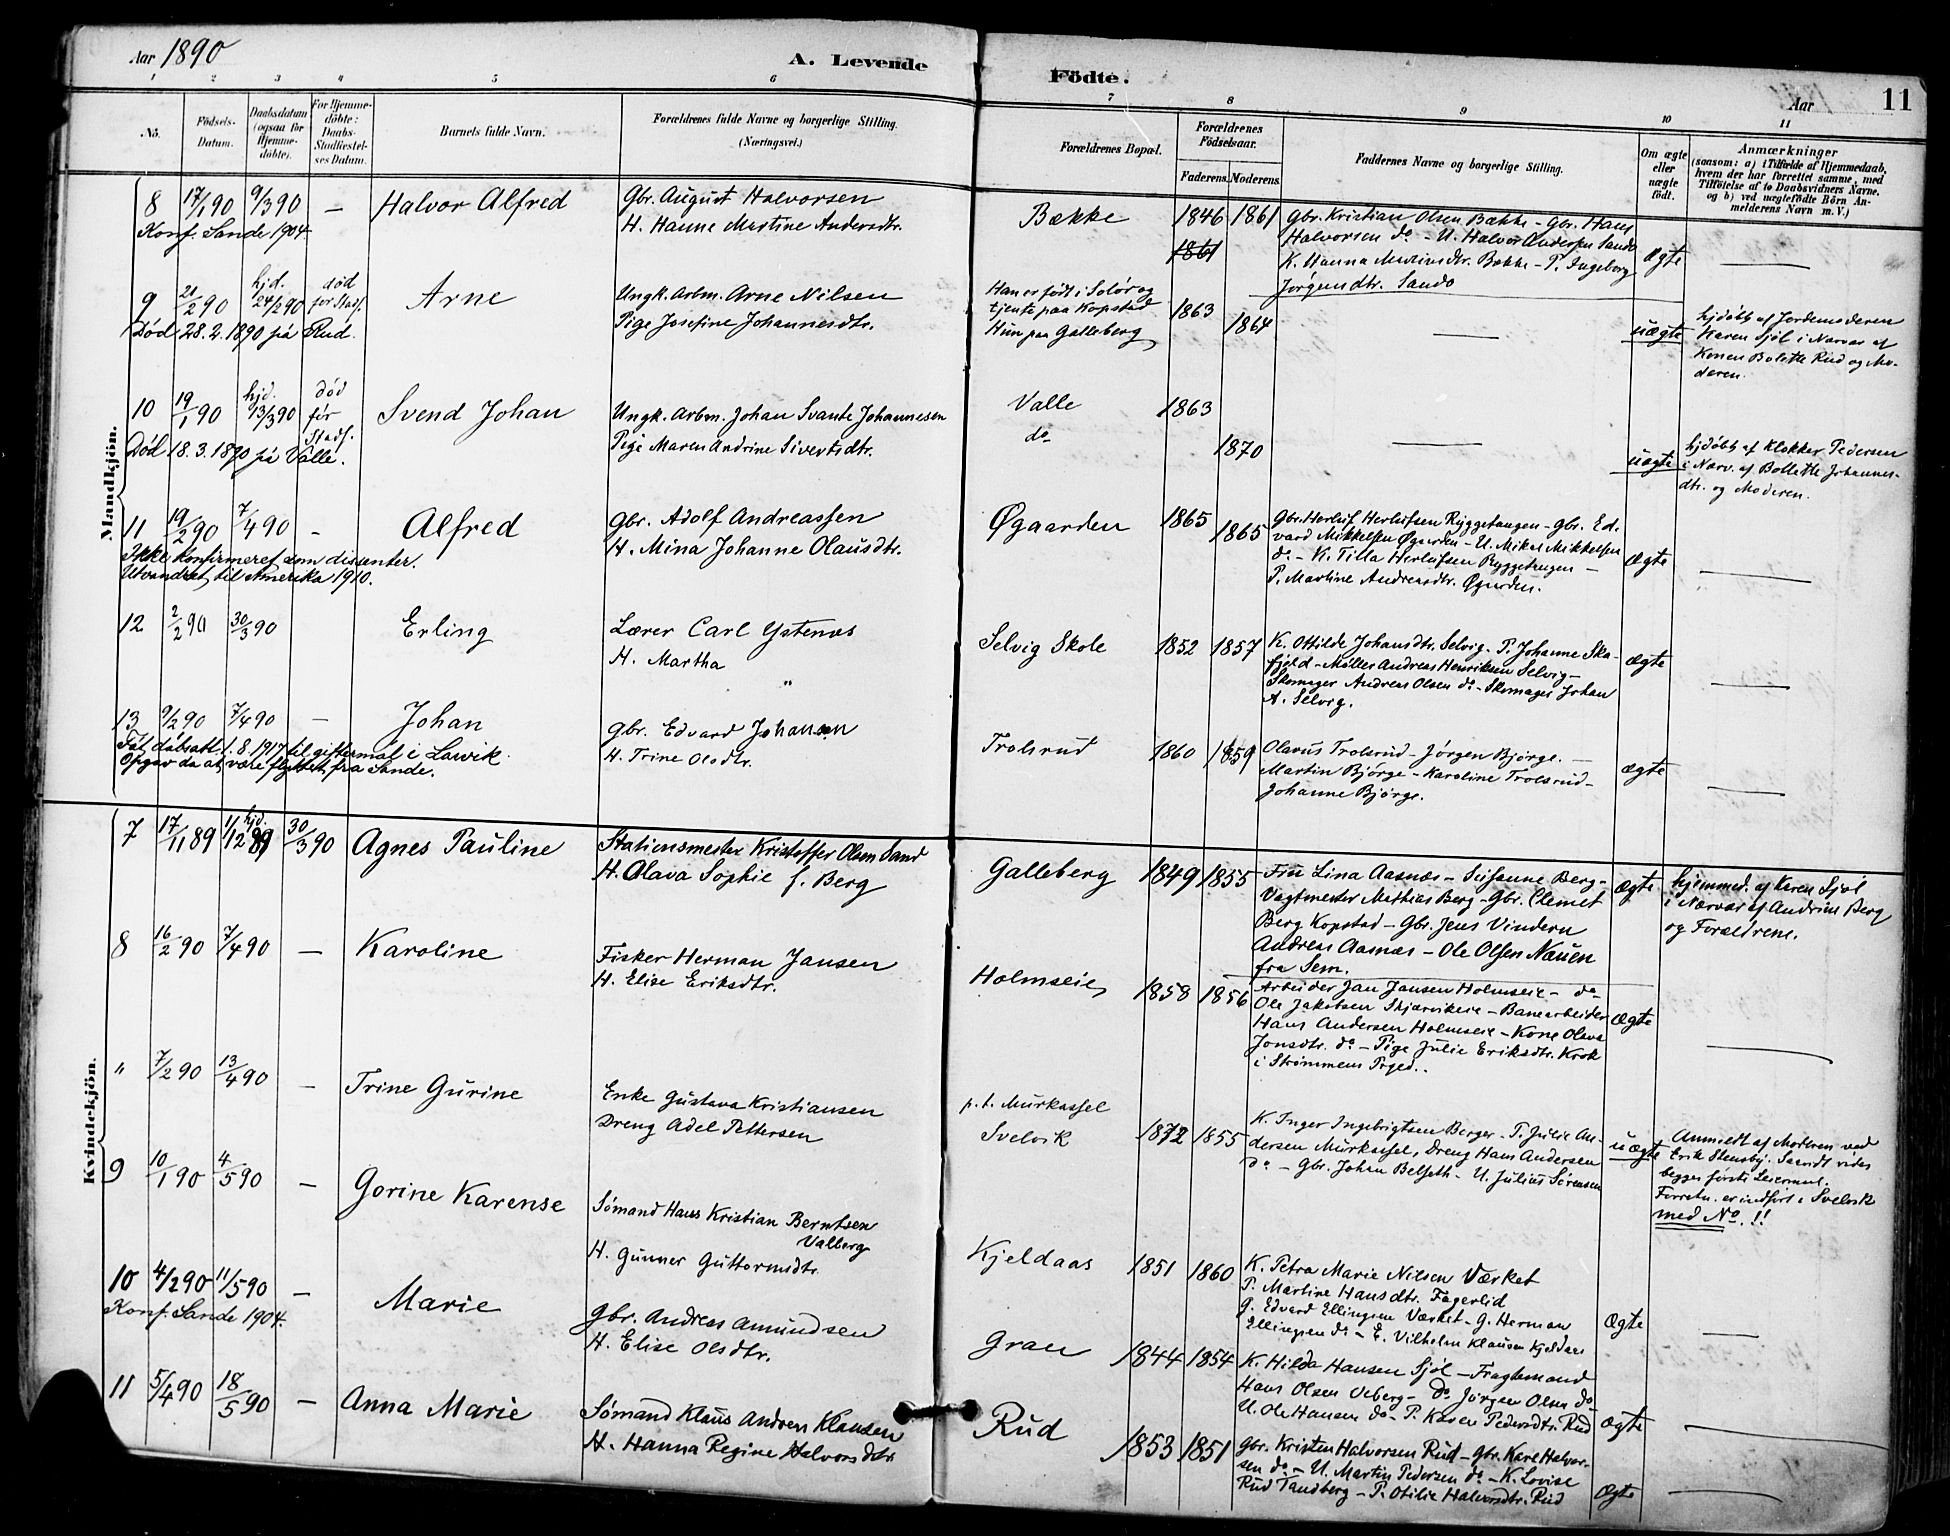 Aar 1890
A. Levende
Födte.
Aar
11
1 2 3 4 5 6 7 8 9 10 11
No.
Födsels-Datum.
Daabsdatum (ogsaa for Hjemme-döbte).
For Hjemme-döbte: Daabs-Stadfæstel-ses Datum.
Barnets fulde Navn.
Forældrenes fulde Navne og borgerlige Stilling.
(Næringsvei.)
Forældrenes Bopæl.
Forældrenes Födselsaar.
Faderens. Moderens.
Faddernes Navne og borgerlige Stilling.
Om ægte eller uægte födt.
Anmærkninger
(saasom: a) i Tilfælde af Hjemmedaab,
hvem der har forrettet samme, med
Tilföielse af to Daabsvidners Navne,
og b) ved uægtefödte Börn An-
melderens Navn m. V.)
Mandkjön.
8 17/1 90 9/3 90 — Halvor Alfred
Konf. Sande 1904.
Gbr. August Halvorsen
H. Hanne Martine Andersdtr.
Bække 1846 1861
1861
Gbr. Kristian Olsen Bække - Gbr. Hans
Halvorsen do - U. Halvor Andersen Sando
K. Hanna Martinsdtr. Bække - P. Ingeborg
Jørgensdtr. Sando
Ægte —
9 21/2 90 hjd. 24/2 90 død for Stadf. Arne
Død 28.2.1890 på Rud.
Ungk. Arbm. Arne Nilsen
Pige Josefine Johannesdtr.
Han er født i Solør og
tjente paa Kopstad
Hun paa Galleberg
1863 1864 — uægte
hjdøbt af Jordemoderen
Karen Sjøl i Nærvær af
Konen Bolette Rud og Mo-
deren.
10 19/1 90 hjd. 13/3 90 død før Stadf. Svend Johan
Død 18.3.1890 på Valle.
Ungk. Arbm. Johan Svante Johannesen
Pige Maren Andrine Sivertsdtr.
Valle 1863
do 1870 — uægte
hjdøbt af Klokker Pedersen
i Nærv. af Bollette Johannes-
dtr. og Moderen.
11 19/2 90 7/4 90 - Alfred
Ikke konfirmeret som dissenter.
Utvandret til Amerika 1910.
Gbr. Adolf Andreassen
H. Mina Johanne Olausdtr.
Øgaarden 1865 1865
Gbr. Herluf Herlufsen Ryggetangen - Gbr. Ed-
vard Mikkelsen Øgarden - U. Mikal Mikkelsen
do - K. Tilla Herlufsen Ryggetangen —
P. Martine Andreasdtr. Øgarden.
Ægte —
12 2/2 90 30/3 90 Erling
Lærer Carl Ystenæs
H. Martha "
Selvig Skole 1852 1857
K. Othilde Johansdtr. Selvig - P. Johanne Ska-
fjeld - Møller Andreas Henriksen Selvig -
Skomager Andreas Olsen do - Skomager Johan
A. Selvig.
Ægte —
13 9/2 90 7/4 90 — Johan
Fåt dåbsatt. 1.8.1917 til giftermål i Larvik.
Opgav da at være flyttet fra Sande.
Gbr. Edvard Johansen
H. Trine Olsdtr.
Trolsrud 1860 1859
Olavus Trolsrud - Jørgen Bjørge. —
Martin Bjørge - Karoline Trolsrud -
Johanne Bjørge.
Ægte —
Kvindekjön.
7 17/11 89 11/12 89 hjd. 30/3 90 Agnes Pauline
Stationsmester Kristoffer Olsen Sand
H. Olava Sophie f. Berg
Galleberg 1849 1855
Fru Lina Aasnæs - Susanne Berg -
Vagtmester Mathias Berg - Gbr. Clemet
Berg Kopstad - Gbr. Jens Vindern
Andreas Aasnæs - Ole Olsen Nauen
fra Sem.
Ægte
hjemmed. af Karen Sjøl
i Nærvær af Andrine Berg
og Forældrene.
8 16/2 90 7/4 90 — Karoline
Fisker Herman Jansen
H. Elise Eriksdtr.
Holmseie 1858 1856
Arbeider Jan Jansen Holmseie - do
Ole Jakobsen Skjærvikeie - Banearbeider
Hans Andersen Holmseie - Kone Olava
Jonsdtr. do - Pige Julie Eriksdtr. Krok
i Strømmens Prgjd..
Ægte —
" 7/2 90 13/4 90 — Trine Gurine
Enke Gustava Kristiansen
Dreng Adel Pettersen
p.t. Murkassel
Svelvik 1872 1855
K. Inger Ingebrigtsen Berger - P. Julie An-
dersen Murkassel, Dreng Hans Andersen
do - Gbr. Johan Belseth - U. Julius Sørensen
uægte
Anmeldt af Moderen ved
Erik Stensby. Saavidt vides
begges første Leiermaal.
Forretn. er indført i Svelvik
med No.!!
9 10/1 90 4/5 90 — Gorine Karense
Sømand Hans Kristian Berntsen
Valberg
H. Gunner Guttormsdtr.
Kjeldaas 1851 1860
K. Petra Marie Nilsen Værket
P. Martine Hansdtr. Fagerlid
G. Edvard Ellingsen Værket - G. Herman
Ellingsen do - E. Vilhelm Klausen Kjeldaas
Ægte —
10 4/2 90 11/5 90 — Marie
Konf. Sande 1904.
Gbr. Andreas Amundsen
H. Elise Olsdtr.
Gran 1844 1854
K. Hilda Hansen Sjøl - Fragtemand
Hans Olsen Veberg - do Jørgen Olsen do
U. Ole Hansen do - P. Karen Pedersdtr. Rud
Ægte —
11 5/4 90 18/5 90 — Anna Marie
Sømand Klaus Andreas Klausen
H. Hanna Regine Halvorsdtr.
Rud 1853 1851
Gbr. Kristen Halvorsen Rud - Gbr. Karl Halvor-
sen do - U. Martin Pedersen do - K. Lovise
Rud Tandberg - P. Otilie Halvorsdtr. Rud
Ægte —